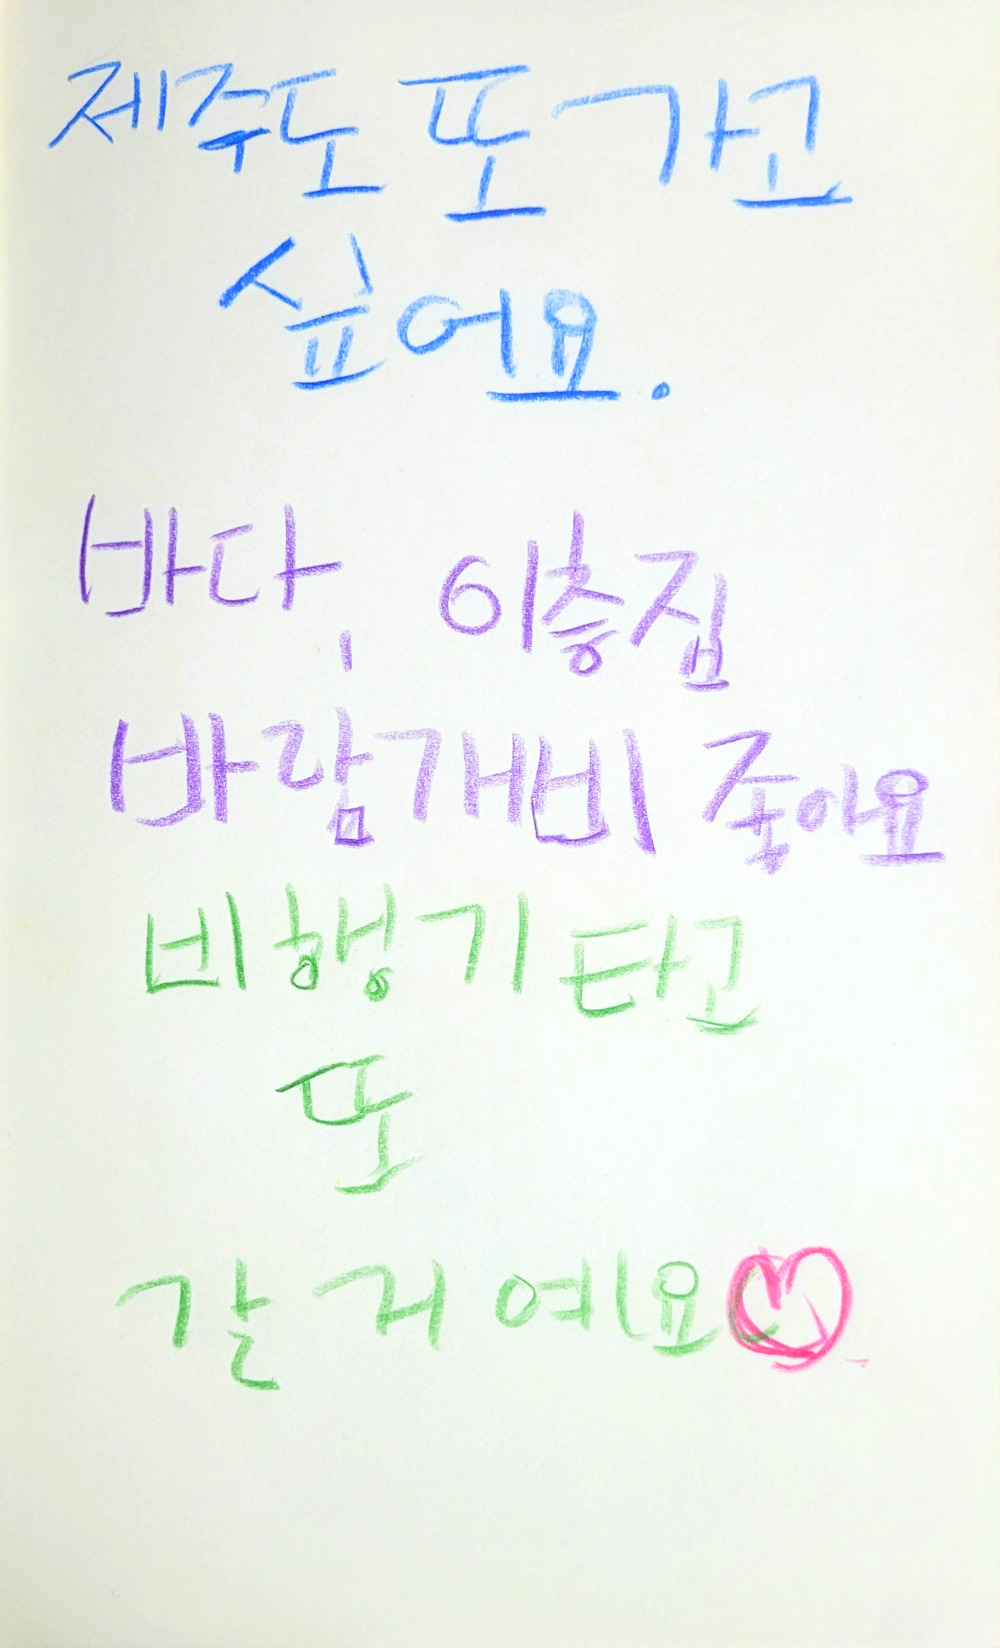 제주도 또 가고
싶어요.
바다, 이층집
바람개비 좋아요
비행기 타고
또
갈 거예요♡